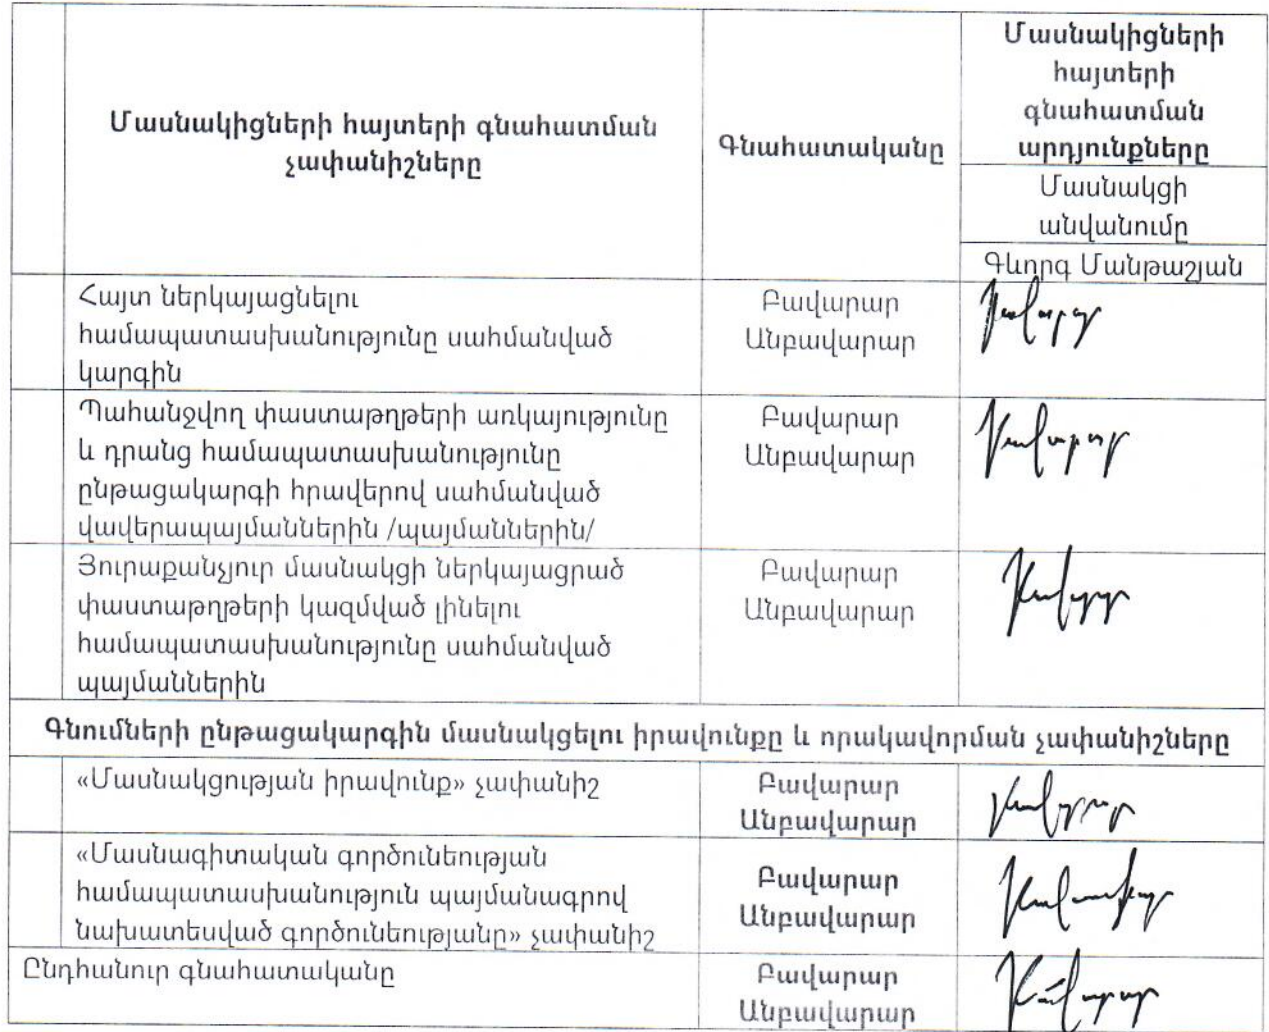 Մասնակիցների հայտերի գնահատման
չափանիշները
Գնահատականը
Մասնակիցների
հայտերի
գնահատման
արդյունքները
Մասնակցի
անվանումը
Գևորգ Մանթաշյան
Հայտ ներկայացնելու
համապատասխանությունը սահմանված
կարգին
Բավարար
Անբավարար
Պահանջվող փաստաթղթերի առկայությունը
և դրանց համապատասխանությունը
ընթացակարգի հրավերով սահմանված
վավերապայմաններին /պայմաններին/
Բավարար
Անբավարար
Յուրաքանչյուր մասնակցի ներկայացրած
փաստաթղթերի կազմված լինելու
համապատասխանությունը սահմանված
պայմաններին
Բավարար
Անբավարար
Գնումների ընթացակարգին մասնակցելու իրավունքը և որակավորման չափանիշները
«Մասնակցության իրավունք» չափանիշ
Բավարար
Անբավարար
«Մասնագիտական գործունեության
համապատասխանություն պայմանագրով
նախատեսված գործունեությանը» չափանիշ
Բավարար
Անբավարար
Ընդհանուր գնահատականը
Բավարար
Անբավարար